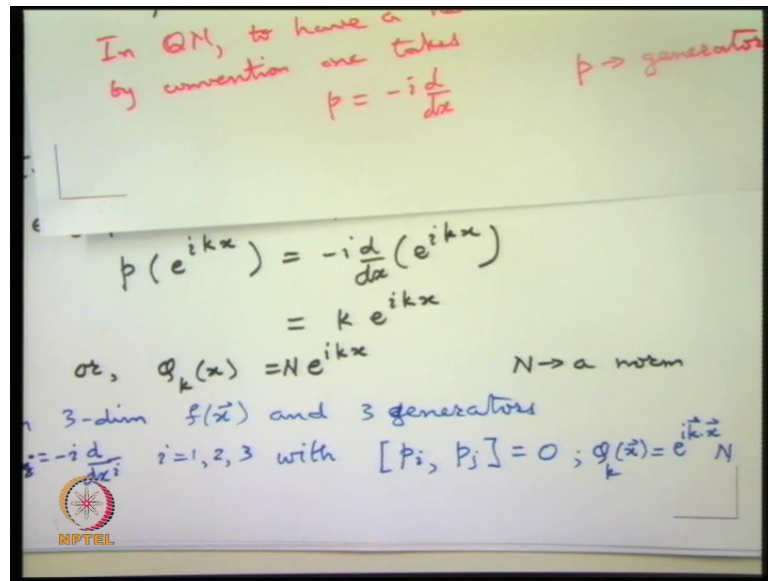 In QM, to have a
by convention one takes
p = -i d/dx
p → generator
p(e^{ikx}) = -i d/dx (e^{ikx})
= k e^{ikx}
or, φ_k(x) = N e^{ikx} N → a norm
3-dim f(x⃗) and 3 generators
= -i d/dx^i i=1,2,3 with [p_i, p_j] = 0 ; φ_k(x⃗) = e^{ik⃗·x⃗} N
NPTEL